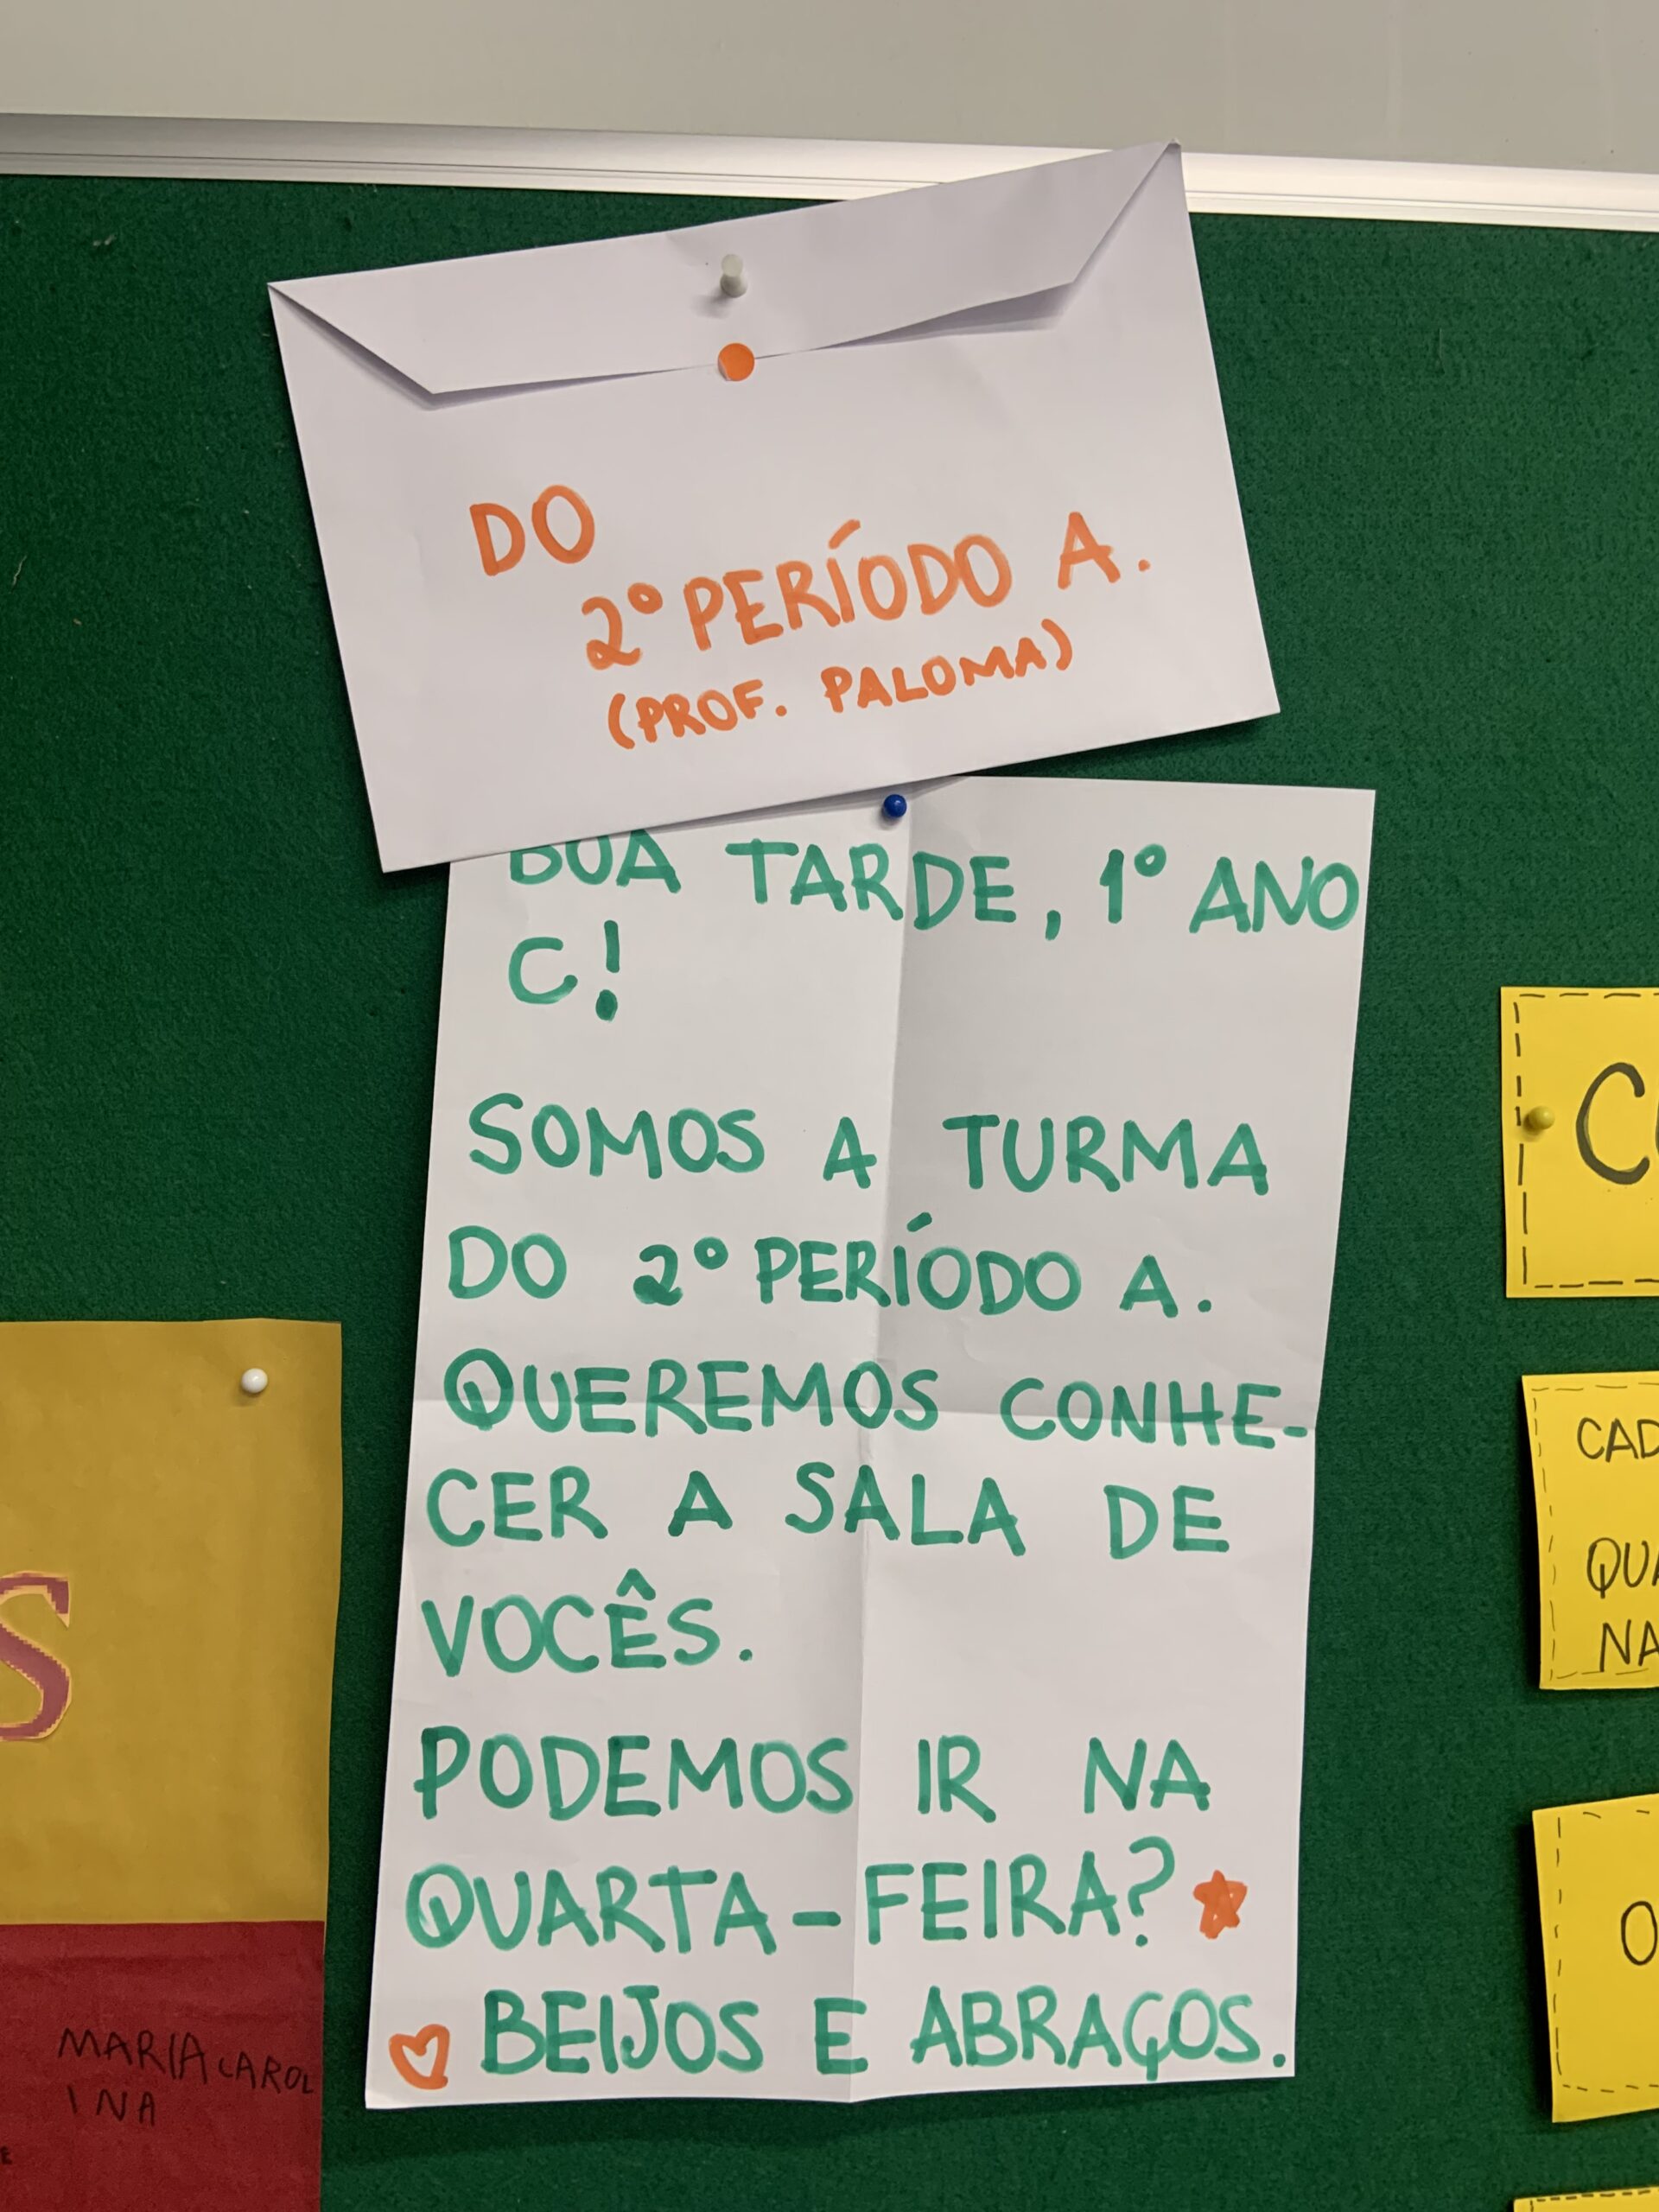 DO
2º PERÍODO A.
(PROF. PALOMA)
BOA TARDE, 1º ANO
C!
SOMOS A TURMA
DO 2º PERÍODO A.
QUEREMOS CONHE-
CER A SALA DE
VOCÊS.
PODEMOS IR NA
QUARTA-FEIRA?
BEIJOS E ABRAÇOS.
S
MARIA CAROL
INA
CAD
QUA
NA
O